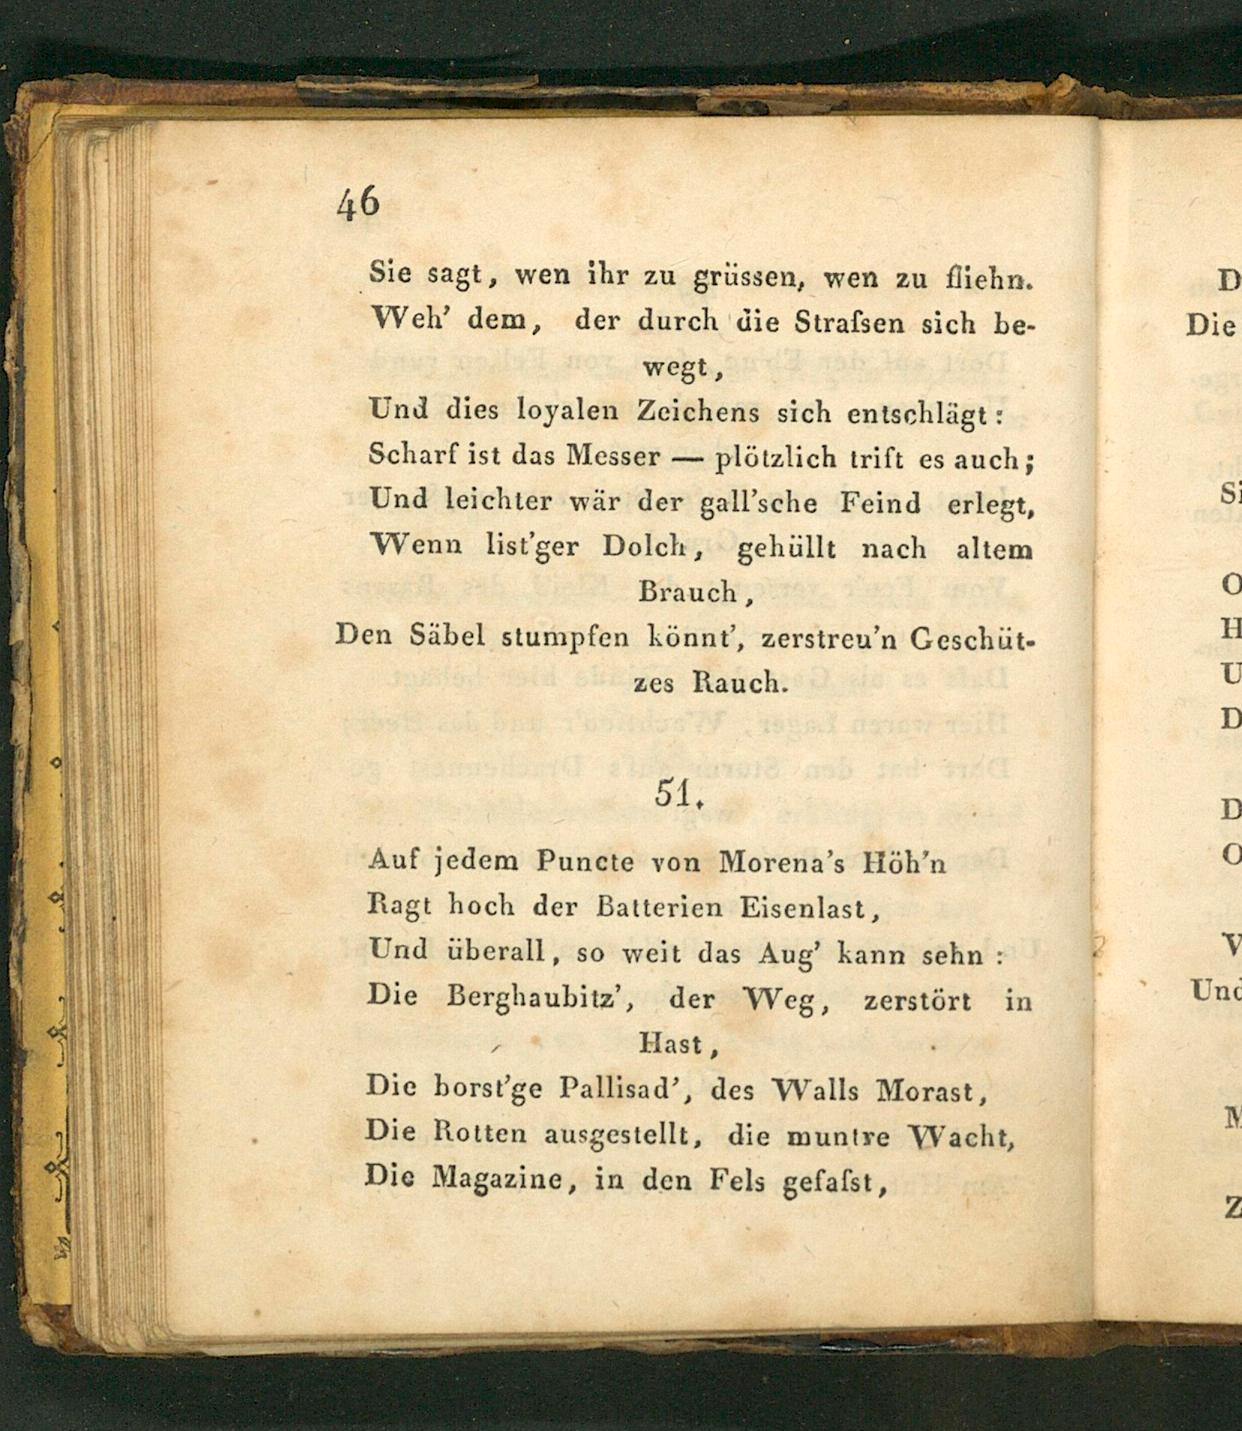 46
Sie sagt, wen ihr zu grüssen, wen zu fliehn.
Weh' dem, der durch die Straſsen sich be-
wegt,
Und dies loyalen Zeichens sich entschlägt:
Scharf ist das Messer — plötzlich trift es auch;
Und leichter wär der gall'sche Feind erlegt,
Wenn list'ger Dolch, gehüllt nach altem
Brauch,
Den Säbel stumpfen könnt', zerstreu'n Geschüt-
zes Rauch.
51.
Auf jedem Puncte von Morena's Höh'n
Ragt hoch der Batterien Eisenlast,
Und überall, so weit das Aug' kann sehn:
Die Berghaubitz', der Weg, zerstört in
Hast,
Die borst'ge Pallisad', des Walls Morast,
Die Rotten ausgestellt, die muntre Wacht,
Die Magazine, in den Fels gefaſst,
D
Die
Si
O
H
U
D
D
O
V
Und
M
Z